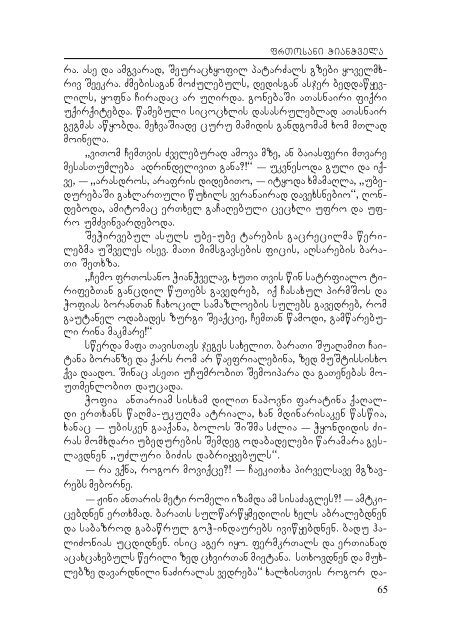 ფრთოსანი ჭიანჭველა
რა. ასე და ამგვარად, შეურაცხყოფილ პატარძალს გზები ყოველმხ-
რივ შეეკრა. ძმებისაგან მოძულებულს, დედისგან ასჯერ ბედდაწყევ-
ლილს, ყოფნა ჩირადაც არ უღირდა. გონებაში ათასნაირი ფიქრი
უქირქიტებდა. წამებული სიცოცხლის დასასრულებლად ათასნაირ
გეგმას აწყობდა. მეხვაშიადე ცურუ მამიდის განდგომამ ხომ მთლად
მოინელა.
„ვითომ ჩემთვის ძველებურად ამოვა მზე, ან ბაიასფერი მთვარე
მესასთუმლება ადრინდელივით განა?!“ — უკვნესოდა გული და იქ-
ვე, — „არასდროს, არაფრის დიდებით, — იტყოდა ხმამაღლა, „უბე-
დურებაში გახლართული წუხილს ვერანაირად დავეხსნებიო“, ღონ-
დებოდა, ამიტომაც ერთხელ გაჩაღებული ცეცხლი უფრო და უფ-
რო უმძვინვარდებოდა.
შეჭირვებულ ასულს უბე-უბე ტარების გაცრეცილმა წერი-
ლებმა უშველეს ისევ. მათი მიმსგავსების ფიცის, აღსარების ბარა-
თი შეთხზა.
„ჩემო ფრთოსანო ჭიანჭველავ, ხუთი თვის წინ სატრფიალო ტი-
რიფებთან განცდილ წუთებს გავედრებ, იქ ჩასახულ პირმშოს და
ჭოფიას ბორანთან ჩახოცილ სამაზლოების სულებს გავედრებ, რომ
გაუტანელ ოდაბადეს ზურგი შეაქციე, ჩემთან წამოდი, გამწარებუ-
ლი რინა მაკმარე!“
სწერდა მაფა თავისთავს ჯეგეს სახელით. ბარათი შუაღამით ჩაი-
ტანა ბორანზე და ქარს რომ არ წაეფრიალებინა, ზედ მუშტისსისხო
ქვა დაადო. შინაც ასეთი უჩუმრობით შემოიპარა და გათენებას მო-
უთმენლობით დაუცადა.
ჭოფია ანთარიამ სისხამ დილით ნაპოვნი ფარატინა ქაღალ-
დი ერთხანს წაღმა-უკუღმა ატრიალა, ხან მდინარისაკენ წასწია,
ხანაც — უბისკენ გააქანა, ბოლოს შიშმა სძლია — ჭყონდიდის ძი-
რას მომხდარი უბედურების შემდეგ ოდაბადელები წარამარა გეს-
ლავდნენ „უძლური ბიძის დაბრიყვებულს“.
— რა ვქნა, როგორ მოვიქცე?! — ჩაეკითხა პირველსავე მგზავ-
რებს მებორნე.
— ჟინი ანთარის მეტი რომელი იზამდა ამ სისაძაგლეს?! — ამტკი-
ცებდნენ ერთხმად. ბარათს სულწარწყმედილის ხელს აბრალებდნენ
და საბაზროდ გაბაწრულ გოჭ-ინდაურებს ივიწყებდნენ. ბადუ ჰა-
ლიძონიას უცდიდნენ. ისიც აგერ იყო. ფერმკრთალს და ერთიანად
აცახცახებულს წერილი ზედ ცხვირთან მიეტანა. სთხოვდნენ და მუხ-
ლებზე დავარდნილი ნაძირალას ვედრება“ ხალხისთვის როგორ და-
65